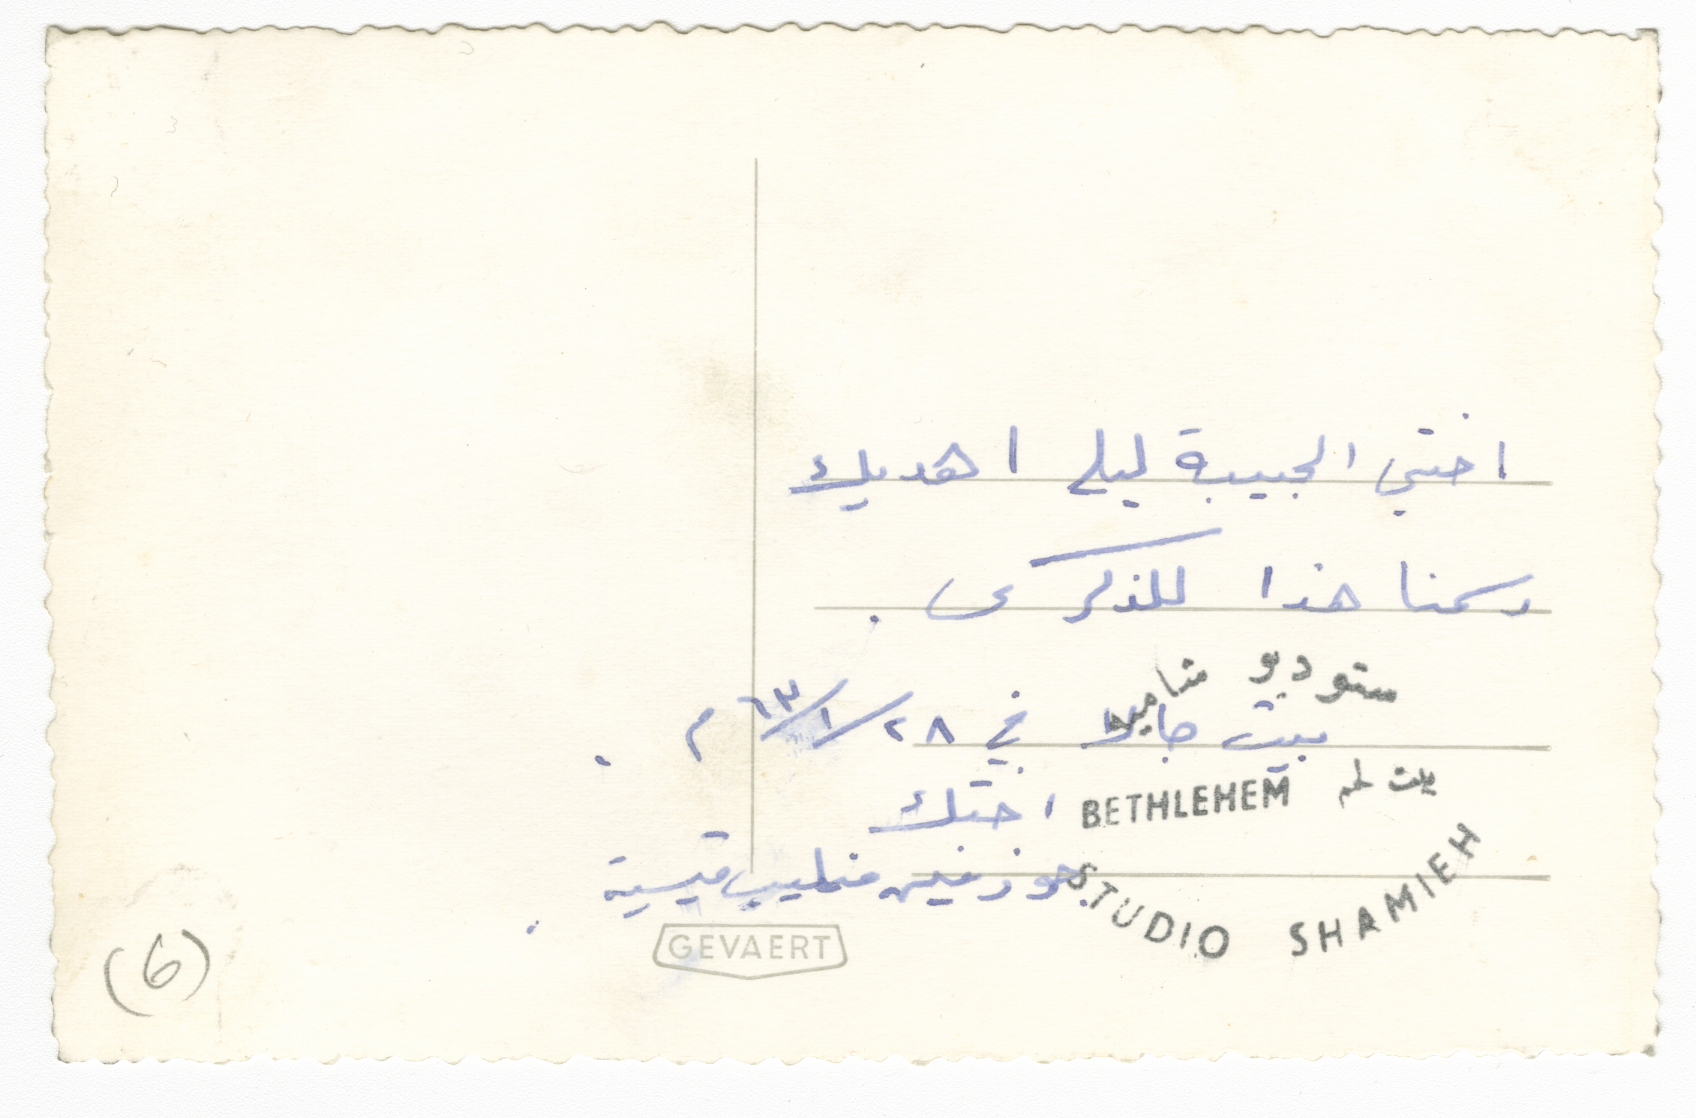 اختي الحبيبة ليلى اهديك
رسمنا هذا للذكرى .
ستوديو شاميه
بيت جالا في ٢٨/١/٦٣ م .
بيت لحم
BETHLEHEM
اختك
جوزفين خليل قيسية .
STUDIO SHAMIEH
GEVAERT
(6)